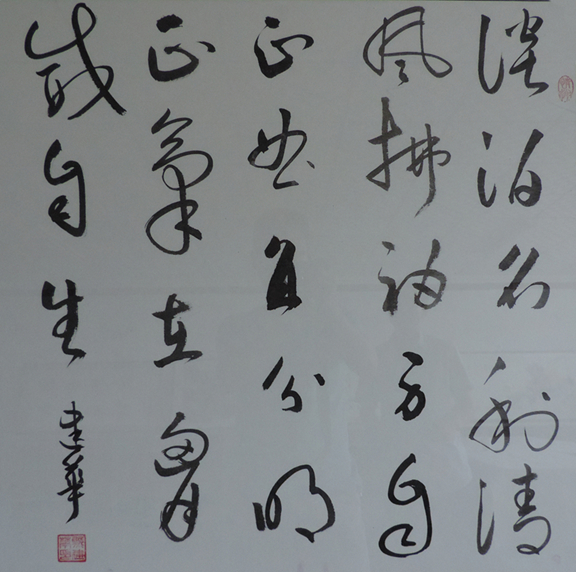 淡泊名利清
風拂袖方自
正曲直分明
正氣在胷
威自生
建華